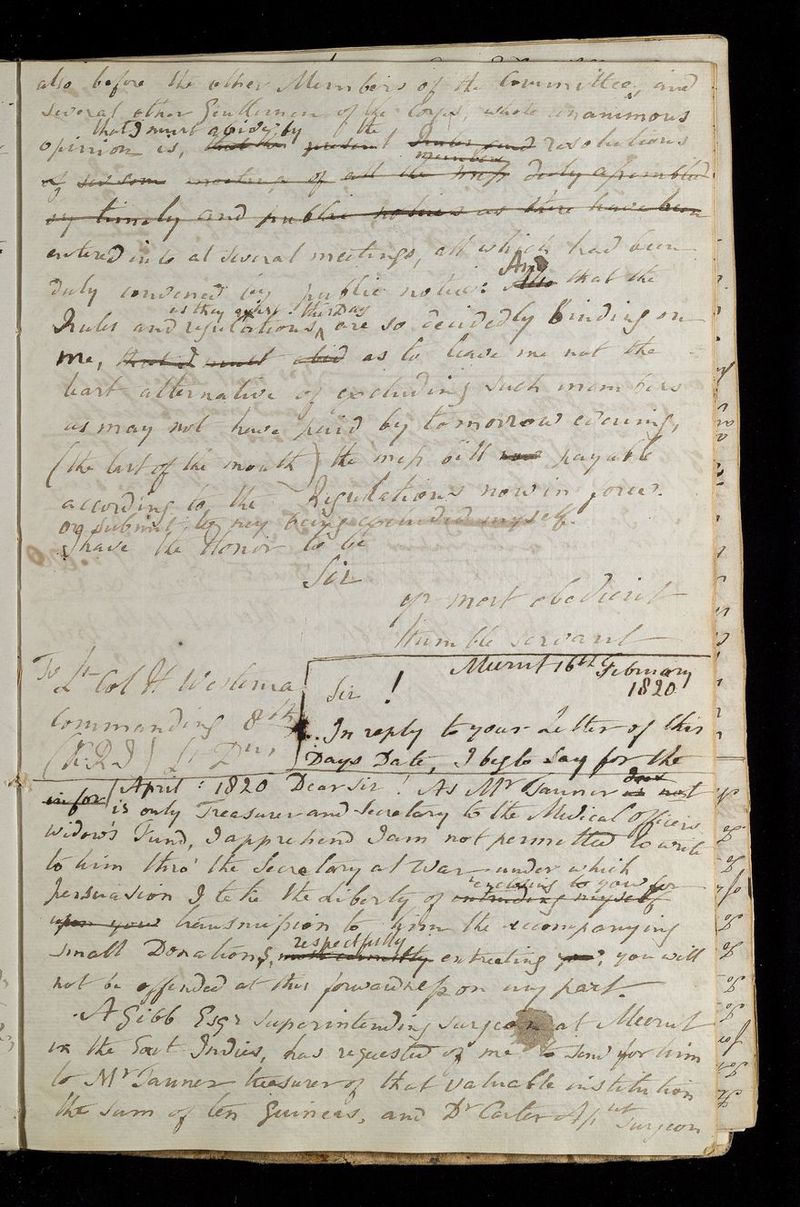 also before the other Members of the Committee, and
several other Gentlemen of the Corps, whose unanimous
that I must abide by the
opinion is, present Rules and resolutions
members
of meeting of all the mess duly assembled
by timely and public notices as there have been
entered into at several meetings, all which had been
And
duly convened by public notice: Also that the
as they exist this Day
Rules and regulations, are so decidedly binding on
me, that I must abid as to leave me not the
least alternative of excluding such members
as may not have paid by tomorrow evening,
(the last of the month) the mess bill payable
according to the Regulations now in force.
or submit to my being excluded myself.
I have the Honor to be
Sir
yr most obedient
Humble servant
To Lt Col H Westenra
Commanding 8th
(K.R.I) Lt Dns
Meerut 16th February
1820
Sir!
In reply to your Letter of this
Days Date, I beg to say for the
April: 1820 Dear Sir! As Mr Tanner does not
in for is only Treasurer and Secretary to the Medical Officers
Widows Fund, I apprehend I am not permitted to write
to him thro' the Secretary at War under which
enclosing to you for
persuasion I take the Liberty of intruding myself
upon your transmission to him the accompanying
respectfully
small Donations, most earnestly entreating you, you will
not be offended at this forwardness on my part.
A Gibb Esqr Superintending Surgeon at Meerut
in the East Indies, has requested of me to send for him
to Mr Tanner treasurer of that valuable institution
the sum of ten Guineas, and Dr Carter Apust Surgeon